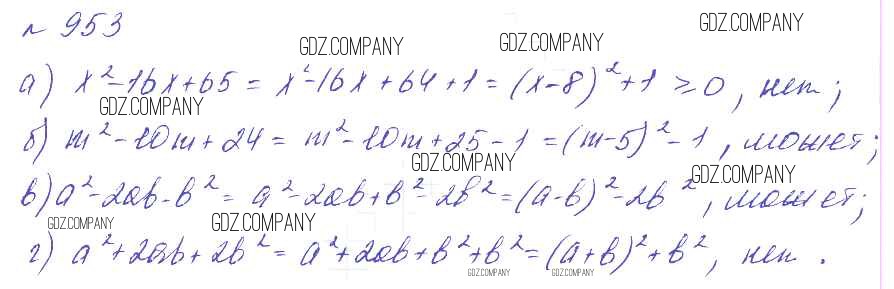 № 953
GDZ.COMPANY GDZ.COMPANY GDZ.COMPANY
а) x² - 16x + 65 = x² - 16x + 64 + 1 = (x - 8)² + 1 ⩾ 0, нет;
GDZ.COMPANY
б) m² - 10m + 24 = m² - 10m + 25 - 1 = (m - 5)² - 1, может;
GDZ.COMPANY GDZ.COMPANY
в) a² - 2ab - b² = a² - 2ab + b² - 2b² = (a - b)² - 2b², может;
GDZ.COMPANY GDZ.COMPANY
г) a² + 2ab + 2b² = a² + 2ab + b² + b² = (a + b)² + b², нет.
GDZ.COMPANY GDZ.COMPANY